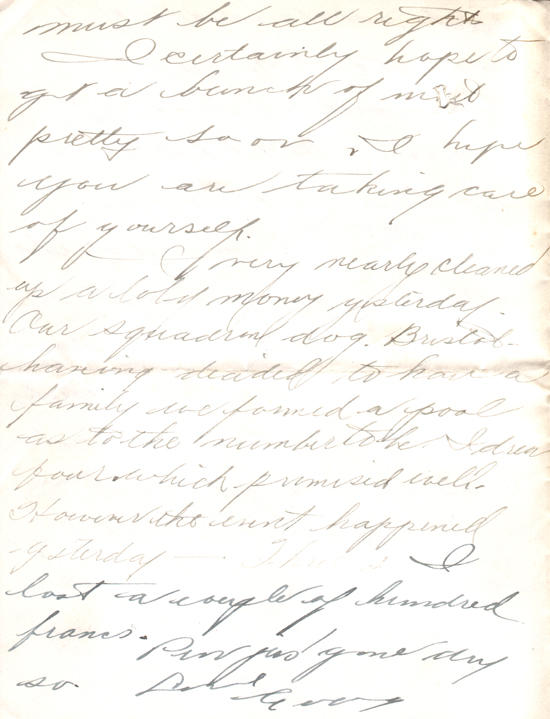 must be all right
I certainly hope to
get a bunch of mail
pretty soon. I hope
you are taking care
of yourself.
I very nearly cleaned
up a lot of money yesterday.
Our squadron dog, Bristol-
having decided to have a
family we formed a pool
as to the number to be. I drew
four which promised well.
However the event happened
yesterday — Three I
lost a couple of hundred
francs.
Pen just gone dry
so